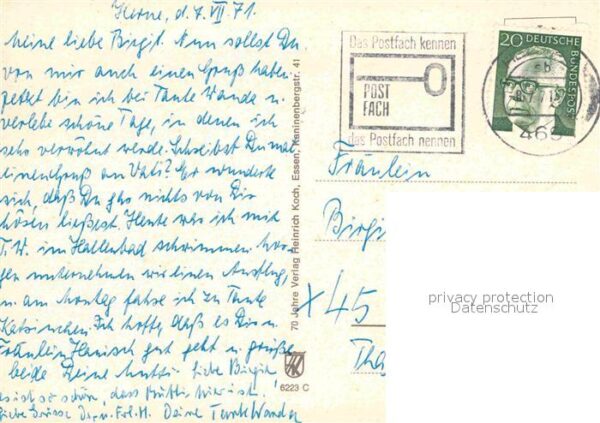 Herne, d. 7. VII 71.
Meine liebe Birgit. Nun sollst Du
von mir auch einen Gruß haben.
Jetzt bin ich bei Tante Wanda u.
verlebe schöne Tage, in denen ich
sehr verwöhnt werde. Schreibst Du mal
einen Gruß an Vati? Er wunderte
sich, daß Du gar nichts von Dir
hören ließest. Heute war ich mit
T. W. im Hallenbad schwimmen. Mor
gen unternehmen wir einen Ausflug,
u. am Montag fahre ich zu Tante
Käthchen. Ich hoffe, daß es Dir u.
Fräulein Hanisch gut geht u. grüße
beide Deine Mutti. Liebe Birgit
es ist so schön, dass Mutti hier ist.
Liebe Grüsse Dir u. Frl. H. Deine Tante Wanda
70 Jahre Verlag Heinrich Koch, Essen, Kaninenbergstr. 41
6223 C
Das Postfach kennen
POST
FACH
das Postfach nennen
20 DEUTSCHE
BUNDESPOST
465
Fräulein
Birgi
X 45
Tha
privacy protection
Datenschutz